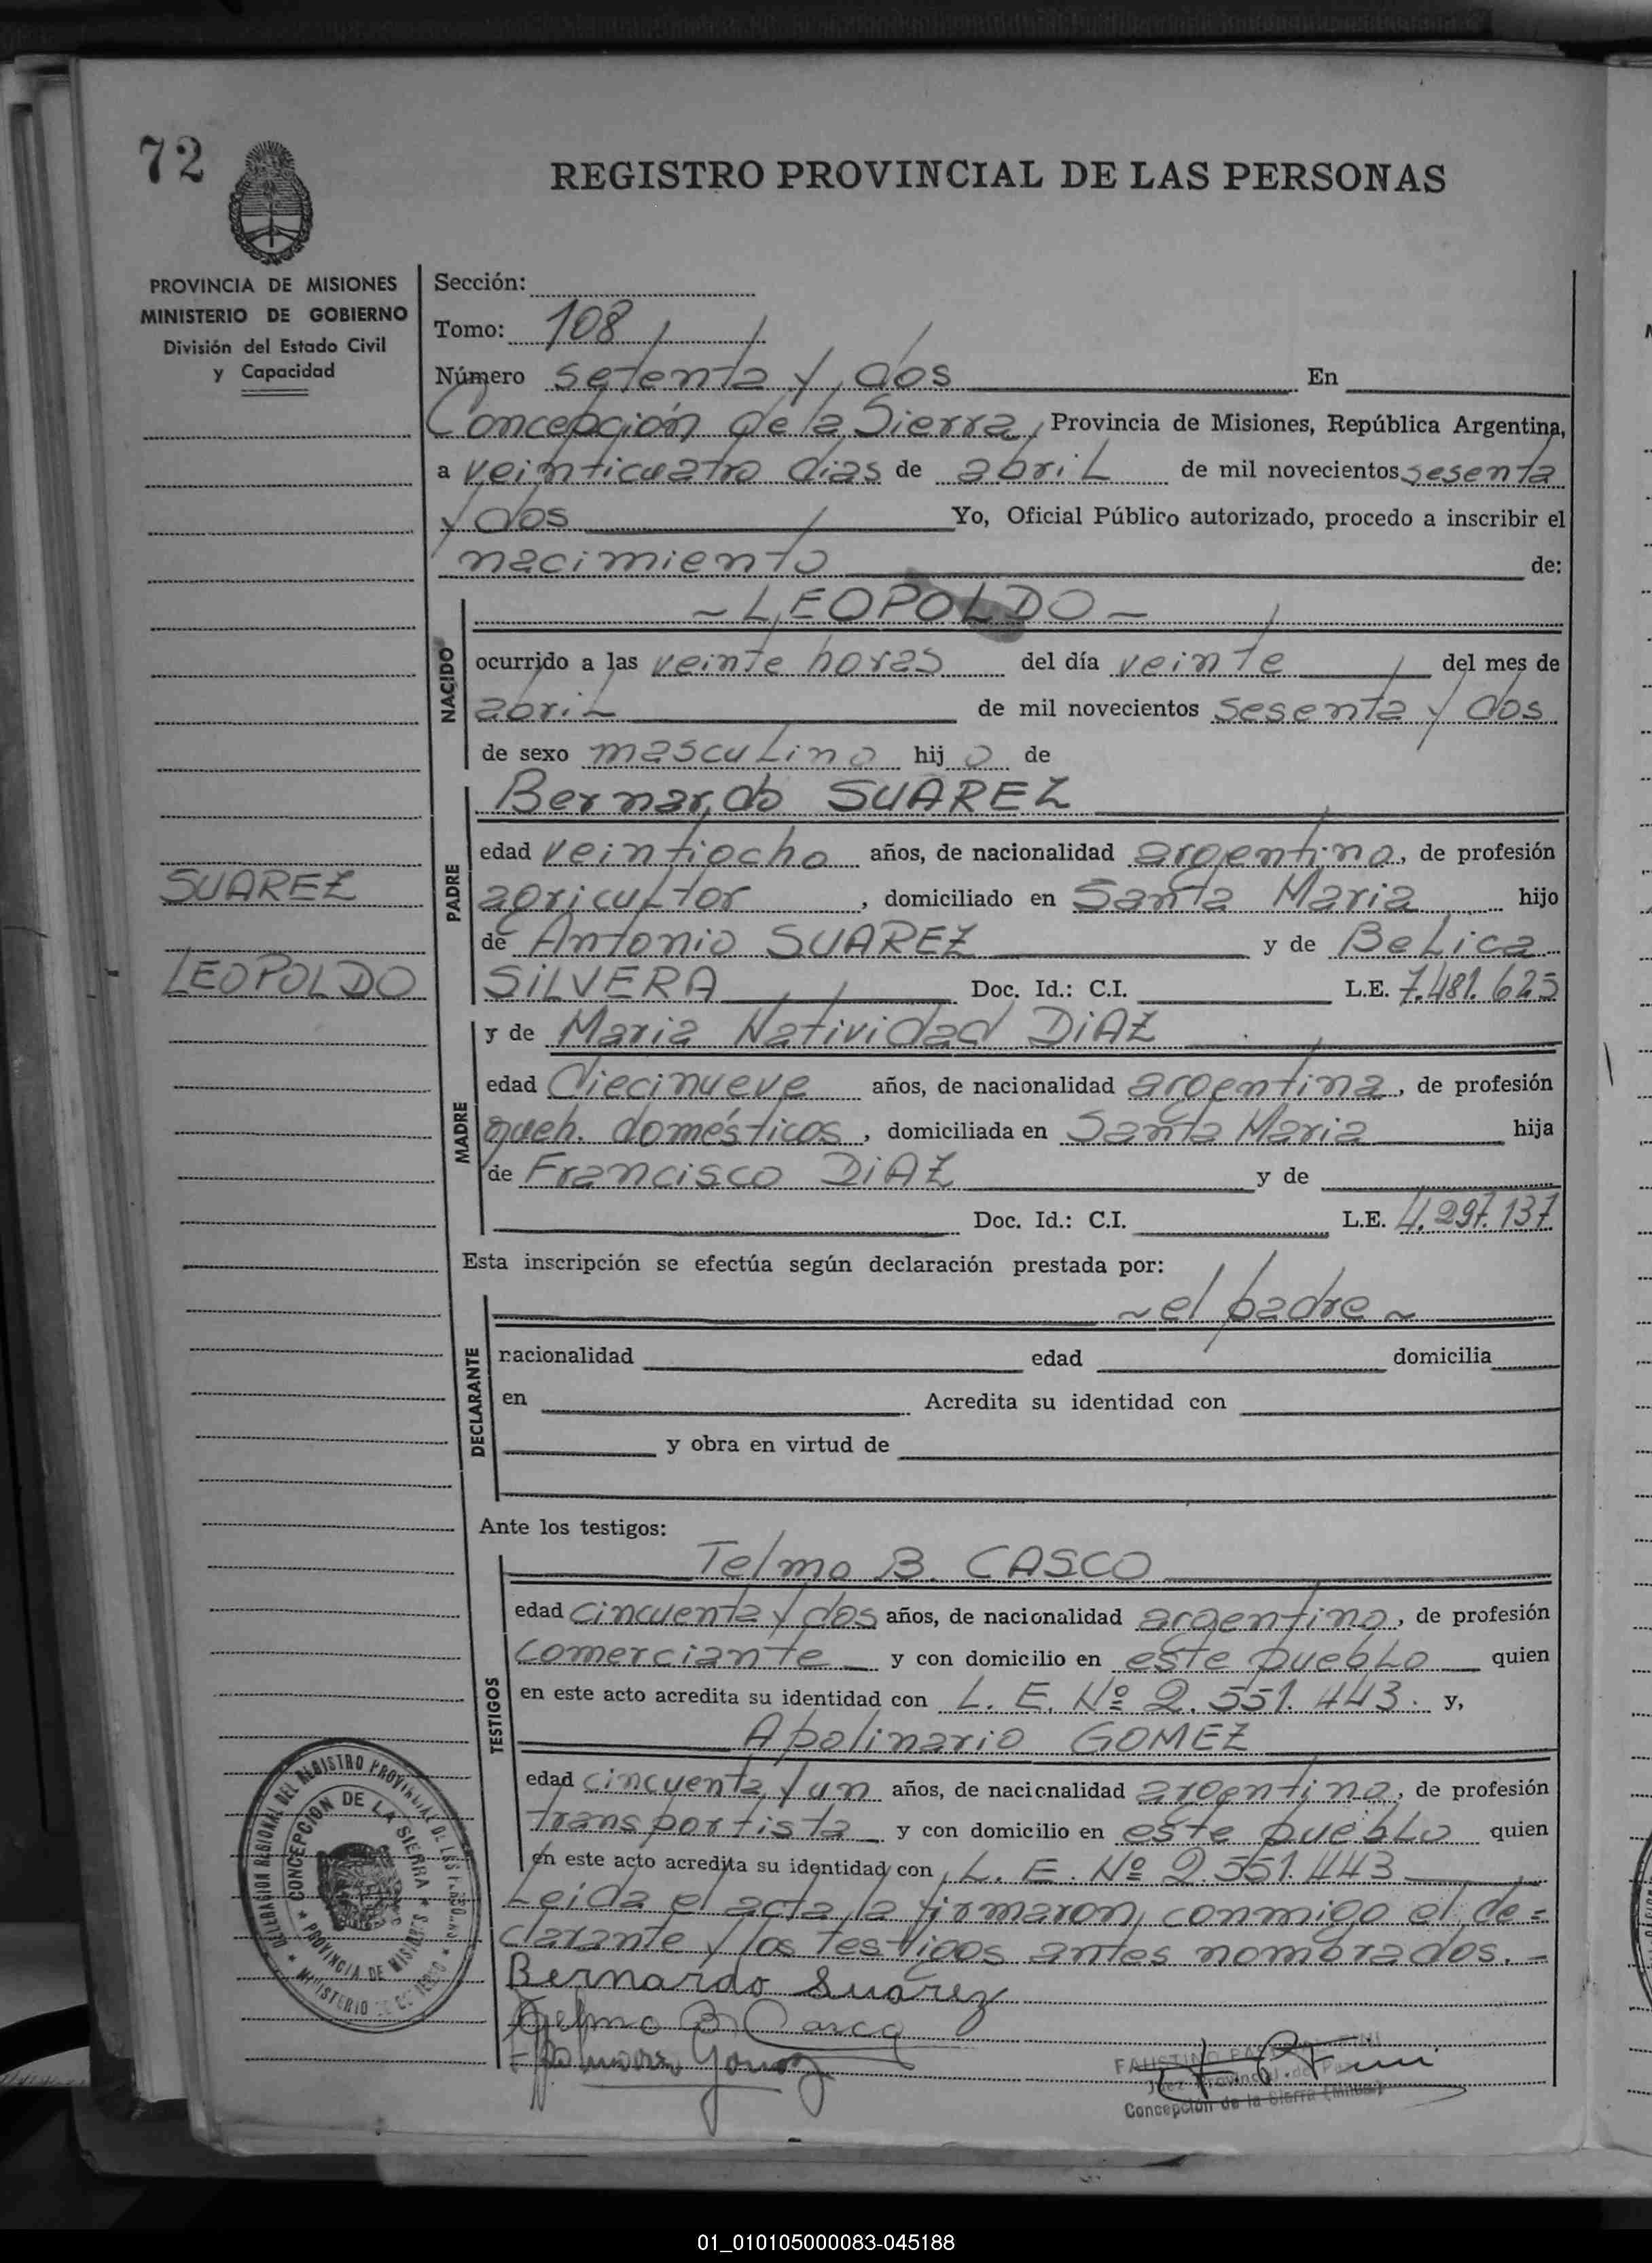 72
REGISTRO PROVINCIAL DE LAS PERSONAS
PROVINCIA DE MISIONES
MINISTERIO DE GOBIERNO
División del Estado Civil
y Capacidad
SUAREZ
LEOPOLDO
Sección:
Tomo: 108
Número setenta y dos En
Concepción de la Sierra, Provincia de Misiones, República Argentina,
a veinticuatro dias de abril de mil novecientos sesenta
y dos Yo, Oficial Público autorizado, procedo a inscribir el
nacimiento de:
NACIDO
~ LEOPOLDO ~
ocurrido a las veinte horas del día veinte del mes de
abril de mil novecientos sesenta y dos
de sexo masculino hijo de
PADRE
Bernardo SUAREZ
edad veintiocho años, de nacionalidad argentino, de profesión
agricultor, domiciliado en Santa Maria hijo
de Antonio SUAREZ y de Belica
SILVERA Doc. Id.: C.I. L.E. 7.481.625
MADRE
y de Maria Natividad DIAZ
edad diecinueve años, de nacionalidad argentina, de profesión
queh. domésticos, domiciliada en Santa Maria hija
de Francisco DIAZ y de
Doc. Id.: C.I. L.E. 4.297.137
Esta inscripción se efectúa según declaración prestada por:
DECLARANTE
~ el padre ~
nacionalidad edad domicilia
en Acredita su identidad con
y obra en virtud de
Ante los testigos:
TESTIGOS
Telmo B. CASCO
edad cincuenta y dos años, de nacionalidad argentino, de profesión
comerciante y con domicilio en este pueblo quien
en este acto acredita su identidad con L. E. Nº 2.551.443. y,
Apolinario GOMEZ
edad cincuenta y un años, de nacionalidad argentino, de profesión
transportista y con domicilio en este pueblo quien
en este acto acredita su identidad con L. E. Nº 2.551.443
Leida el acta, la firmaron, conmigo el de=
clarante y los testigos antes nombrados.=
Bernardo Suarez
Telmo B Casco
Apolinario Gomez
DELEGACION REGIONAL DEL REGISTRO PROVINCIAL DE LAS PERSONAS
CONCEPCION DE LA SIERRA
PROVINCIA DE MISIONES
MINISTERIO DE GOBIERNO
FAUSTINO
Juez Provincial de Paz
Concepción de la Sierra (Mnes.)
01_010105000083-045188